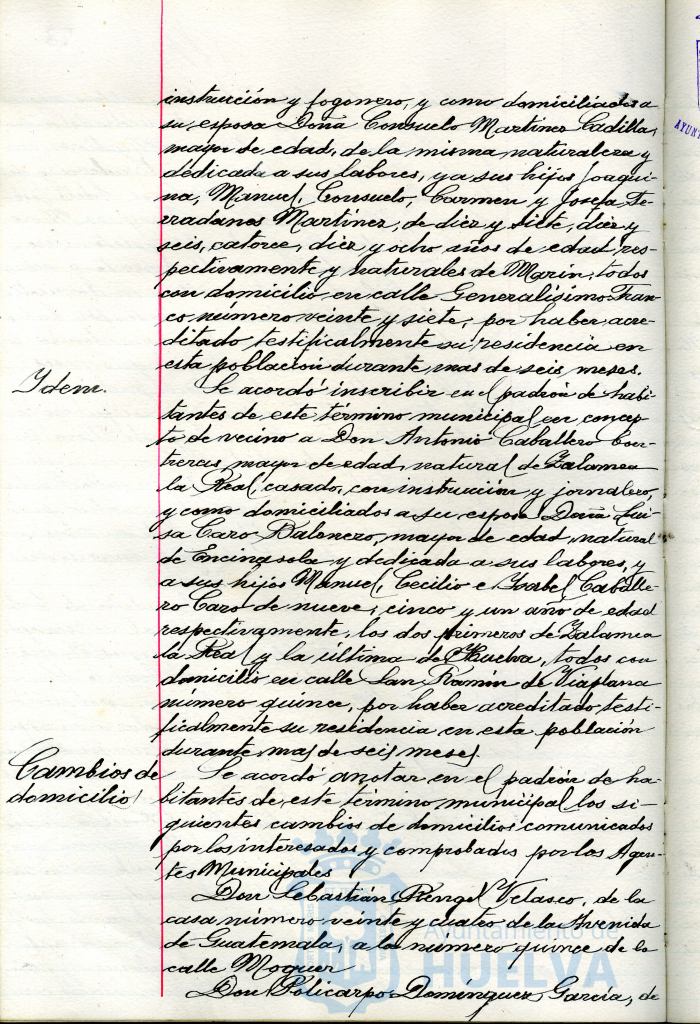 instrucción y fogonero, y como domiciliados a
su esposa Doña Consuelo Martínez Cadilla,
mayor de edad, de la misma naturaleza y
dedicada a sus labores, y a sus hijos Joaqui-
na, Manuel, Consuelo, Carmen y Josefa Fe-
rradanes Martínez, de diez y siete, diez y
seis, catorce, diez y ocho años de edad, res-
pectivamente y naturales de Marin, todos
con domicilio en calle Generalísimo Fran-
co, número veinte y siete, por haber acre-
ditado testificalmente su residencia en
esta población durante mas de seis meses.
Ydem.
Se acordó inscribir en el padrón de habi-
tantes de este término municipal en concep-
to de vecino a Don Antonio Caballero Con-
treras, mayor de edad, natural de Zalamea
la Real, casado, con instrucción y jornalero,
y como domiciliados a su esposa Doña Lui-
sa Caro Balonero, mayor de edad, natural
de Encinasola y dedicada a sus labores, y
a sus hijos Manuel, Cecilio e Ysabel Caballe-
ro Caro de nueve, cinco y un año de edad
respectivamente, los dos primeros de Zalamea
la Real y la última de Huelva, todos con
domicilio en calle San Ramón de Viaplana
número quince, por haber acreditado testi-
ficalmente su residencia en esta población
durante mas de seis meses.
Cambios de
domicilio
Se acordó anotar en el padrón de ha-
bitantes de este término municipal los si-
guientes cambios de domicilios comunicados
por los interesados y comprobados por los Agen-
tes Municipales
Don Sebastián Rengel Velasco, de la
casa número veinte y cuatro de la Avenida
de Guatemala, a la número quince de la
calle Moguer
Don Policarpo Domínguez García, de
Ayuntamiento de
HUELVA